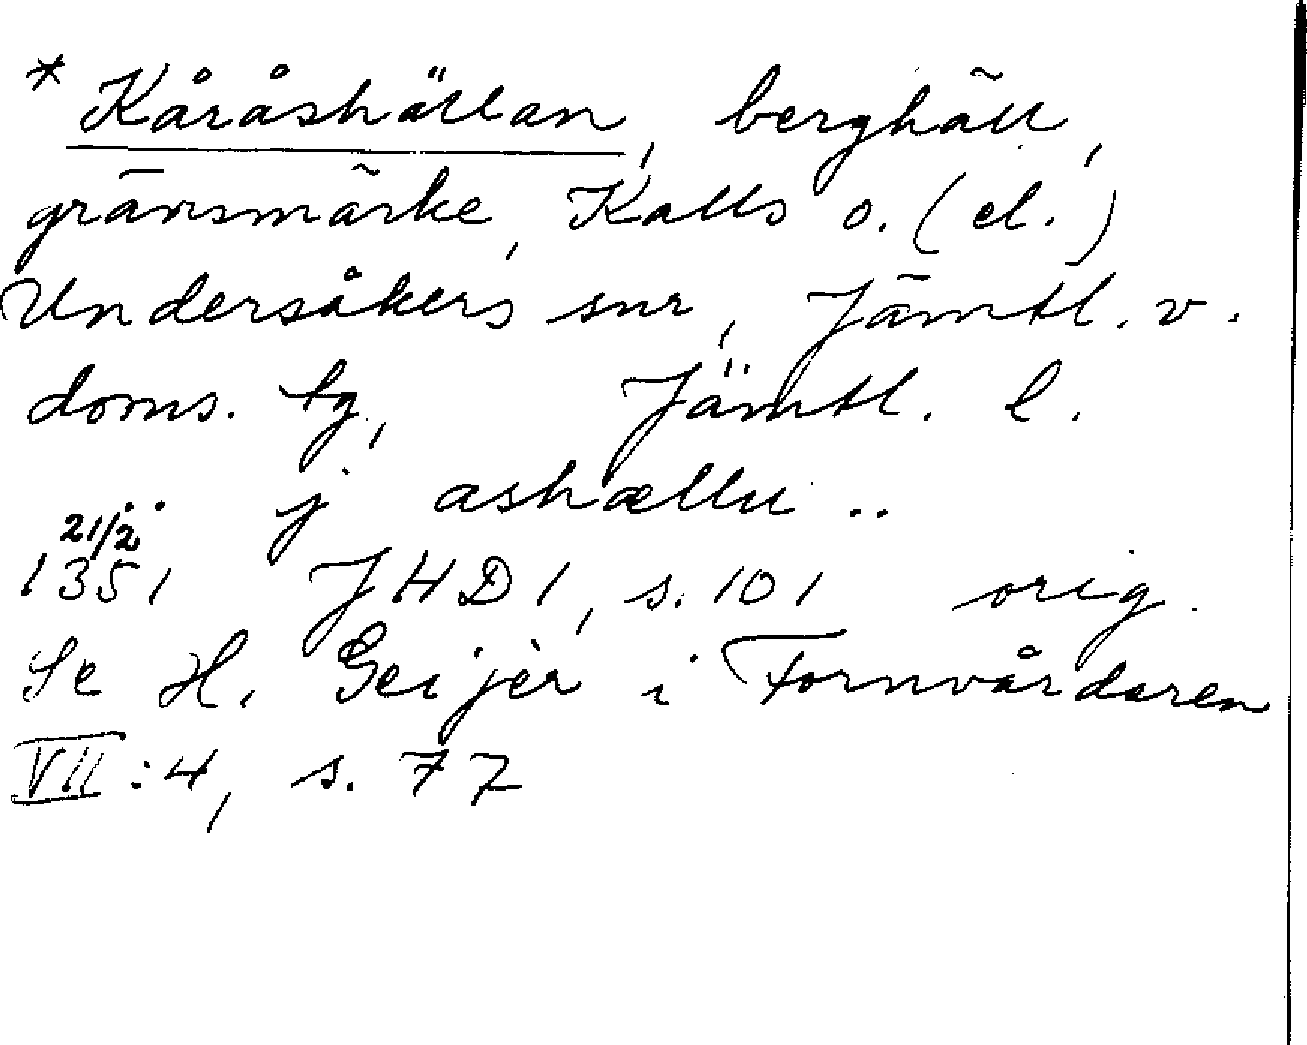 * Kåråshällan, berghäll,
gränsmärke, Kalls o. (el.)
Undersåkers snr, Jämtl. v.
doms. tg, Jämtl. l.
j ashællu ..
21/2
1351 JHD 1, s. 101 orig.
Se H. Geijer i Fornvårdaren
VII:4, s. 77